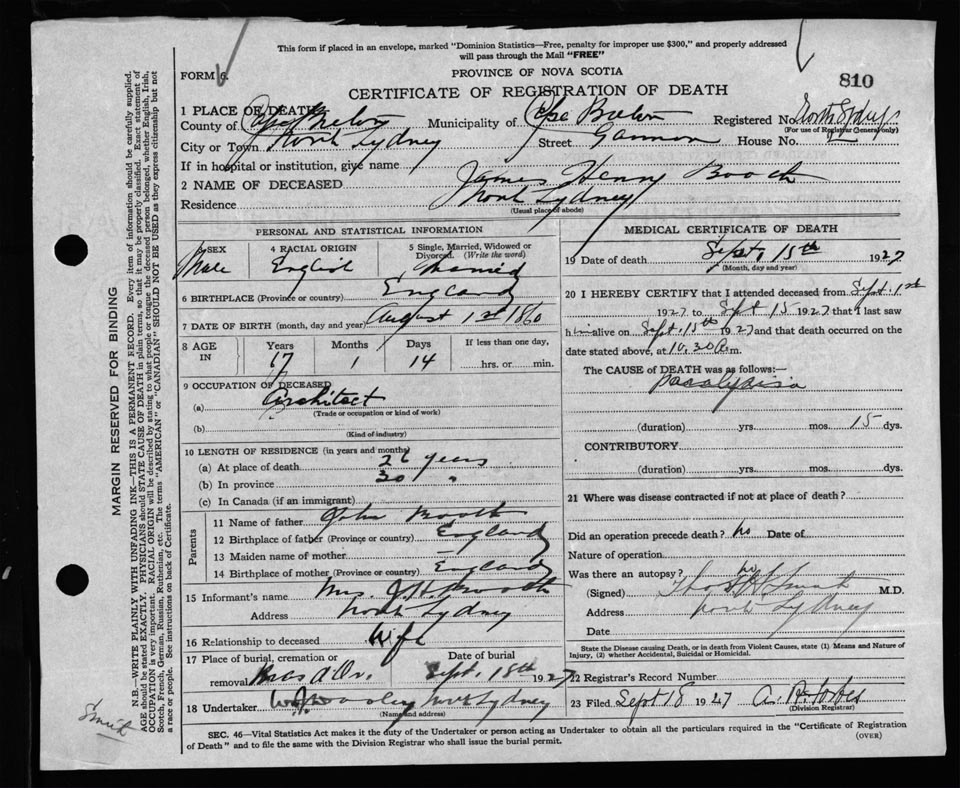 This form if placed in an envelope, marked "Dominion Statistics—Free, penalty for improper use $300," and properly addressed
will pass through the Mail "FREE"
FORM 6.
PROVINCE OF NOVA SCOTIA
810
CERTIFICATE OF REGISTRATION OF DEATH
1 PLACE OF DEATH
County of Cape Breton Municipality of Cape Breton Registered No. North Sydney
(For use of Registrar General only)
City or Town North Sydney Street Gannon House No.
If in hospital or institution, give name
2 NAME OF DECEASED James Henry Booth
Residence North Sydney
(Usual place of abode)
PERSONAL AND STATISTICAL INFORMATION
3 SEX 4 RACIAL ORIGIN 5 Single, Married, Widowed or
Divorced. (Write the word)
Male English Married
6 BIRTHPLACE (Province or country) England
7 DATE OF BIRTH (month, day and year) August 1st 1860
8 AGE IN Years Months Days If less than one day,
67 1 14 hrs. or min.
9 OCCUPATION OF DECEASED
(a) Architect
(Trade or occupation or kind of work)
(b)
(Kind of industry)
10 LENGTH OF RESIDENCE (in years and months)
(a) At place of death years
(b) In province 30 "
(c) In Canada (if an immigrant)
Parents
11 Name of father John Booth
12 Birthplace of father (Province or country) England
13 Maiden name of mother —
14 Birthplace of mother (Province or country) England
15 Informant's name Mrs. J H Booth
Address North Sydney
16 Relationship to deceased Wife
17 Place of burial, cremation or Date of burial
removal Bras d'Or. Sept. 18th 1927
18 Undertaker North Sydney
(Name and address)
MEDICAL CERTIFICATE OF DEATH
19 Date of death Sept, 15th 1927
(Month, day and year)
20 I HEREBY CERTIFY that I attended deceased from Sept. 1st
1927 to Sept 15 1927 that I last saw
him alive on Sept. 15th 1927 and that death occurred on the
date stated above, at 10.30 m.
The CAUSE of DEATH was as follows:—
Paralysis
(duration) yrs. mos. 15 dys.
CONTRIBUTORY
(duration) yrs. mos. dys.
21 Where was disease contracted if not at place of death?
Did an operation precede death? No Date of
Nature of operation
Was there an autopsy? No
(Signed) M.D.
Address North Sydney
Date
State the Disease causing Death, or in death from Violent Causes, state (1) Means and Nature of
Injury, (2) whether Accidental, Suicidal or Homicidal.
22 Registrar's Record Number
23 Filed Sept 18 1927
(Division Registrar)
SEC. 46—Vital Statistics Act makes it the duty of the Undertaker or person acting as Undertaker to obtain all the particulars required in the "Certificate of Registration
of Death" and to file the same with the Division Registrar who shall issue the burial permit.
(OVER)
MARGIN RESERVED FOR BINDING
N.B.—WRITE PLAINLY WITH UNFADING INK—THIS IS A PERMANENT RECORD. Every item of information should be carefully supplied.
AGE should be stated EXACTLY. PHYSICIANS should STATE CAUSE OF DEATH in plain terms, so that it may be properly classified. Exact statement of
OCCUPATION is very important. RACIAL ORIGIN will be described by stating to what people or tongue the deceased person belonged, whether English, Irish,
Scotch, French, German, Russian, Ruthenian, etc. The terms "AMERICAN" or "CANADIAN" SHOULD NOT BE USED as they express citizenship but not
a race or people. See instructions on back of Certificate.